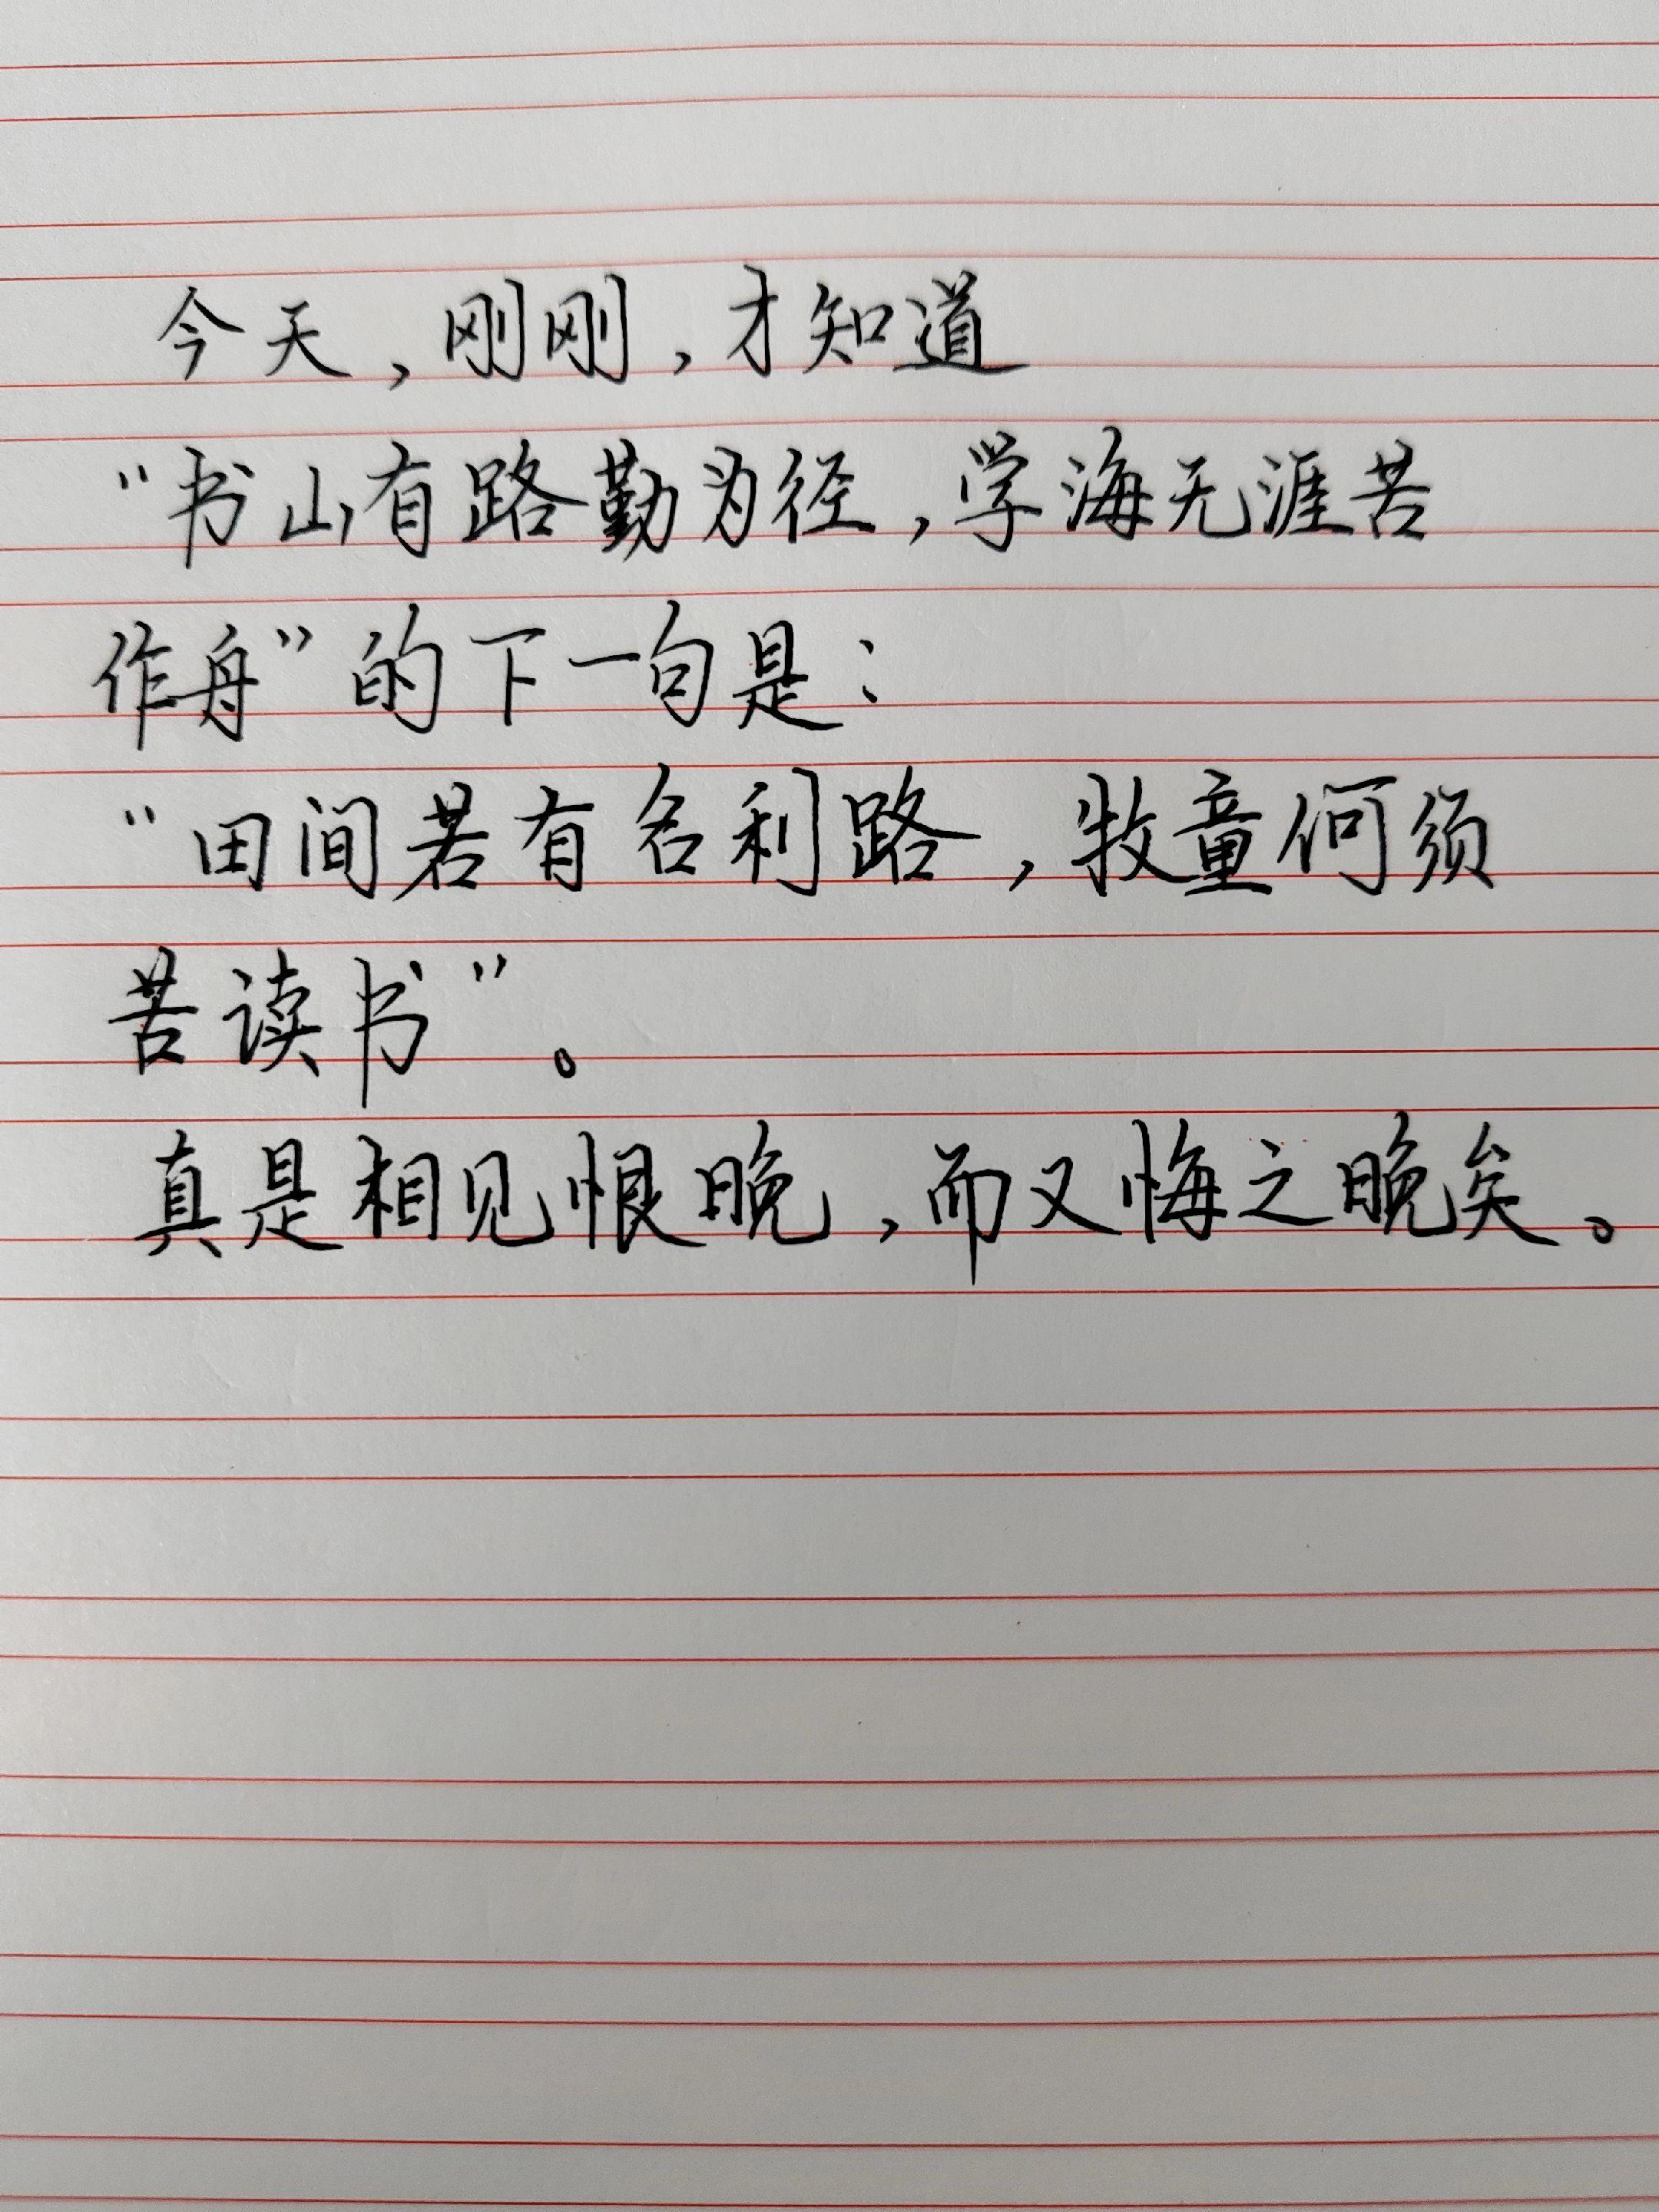 今天，刚刚，才知道
“书山有路勤为径，学海无涯苦
作舟”的下一句是：
“田间若有名利路，牧童何须
苦读书”。
真是相见恨晚，而又悔之晚矣。